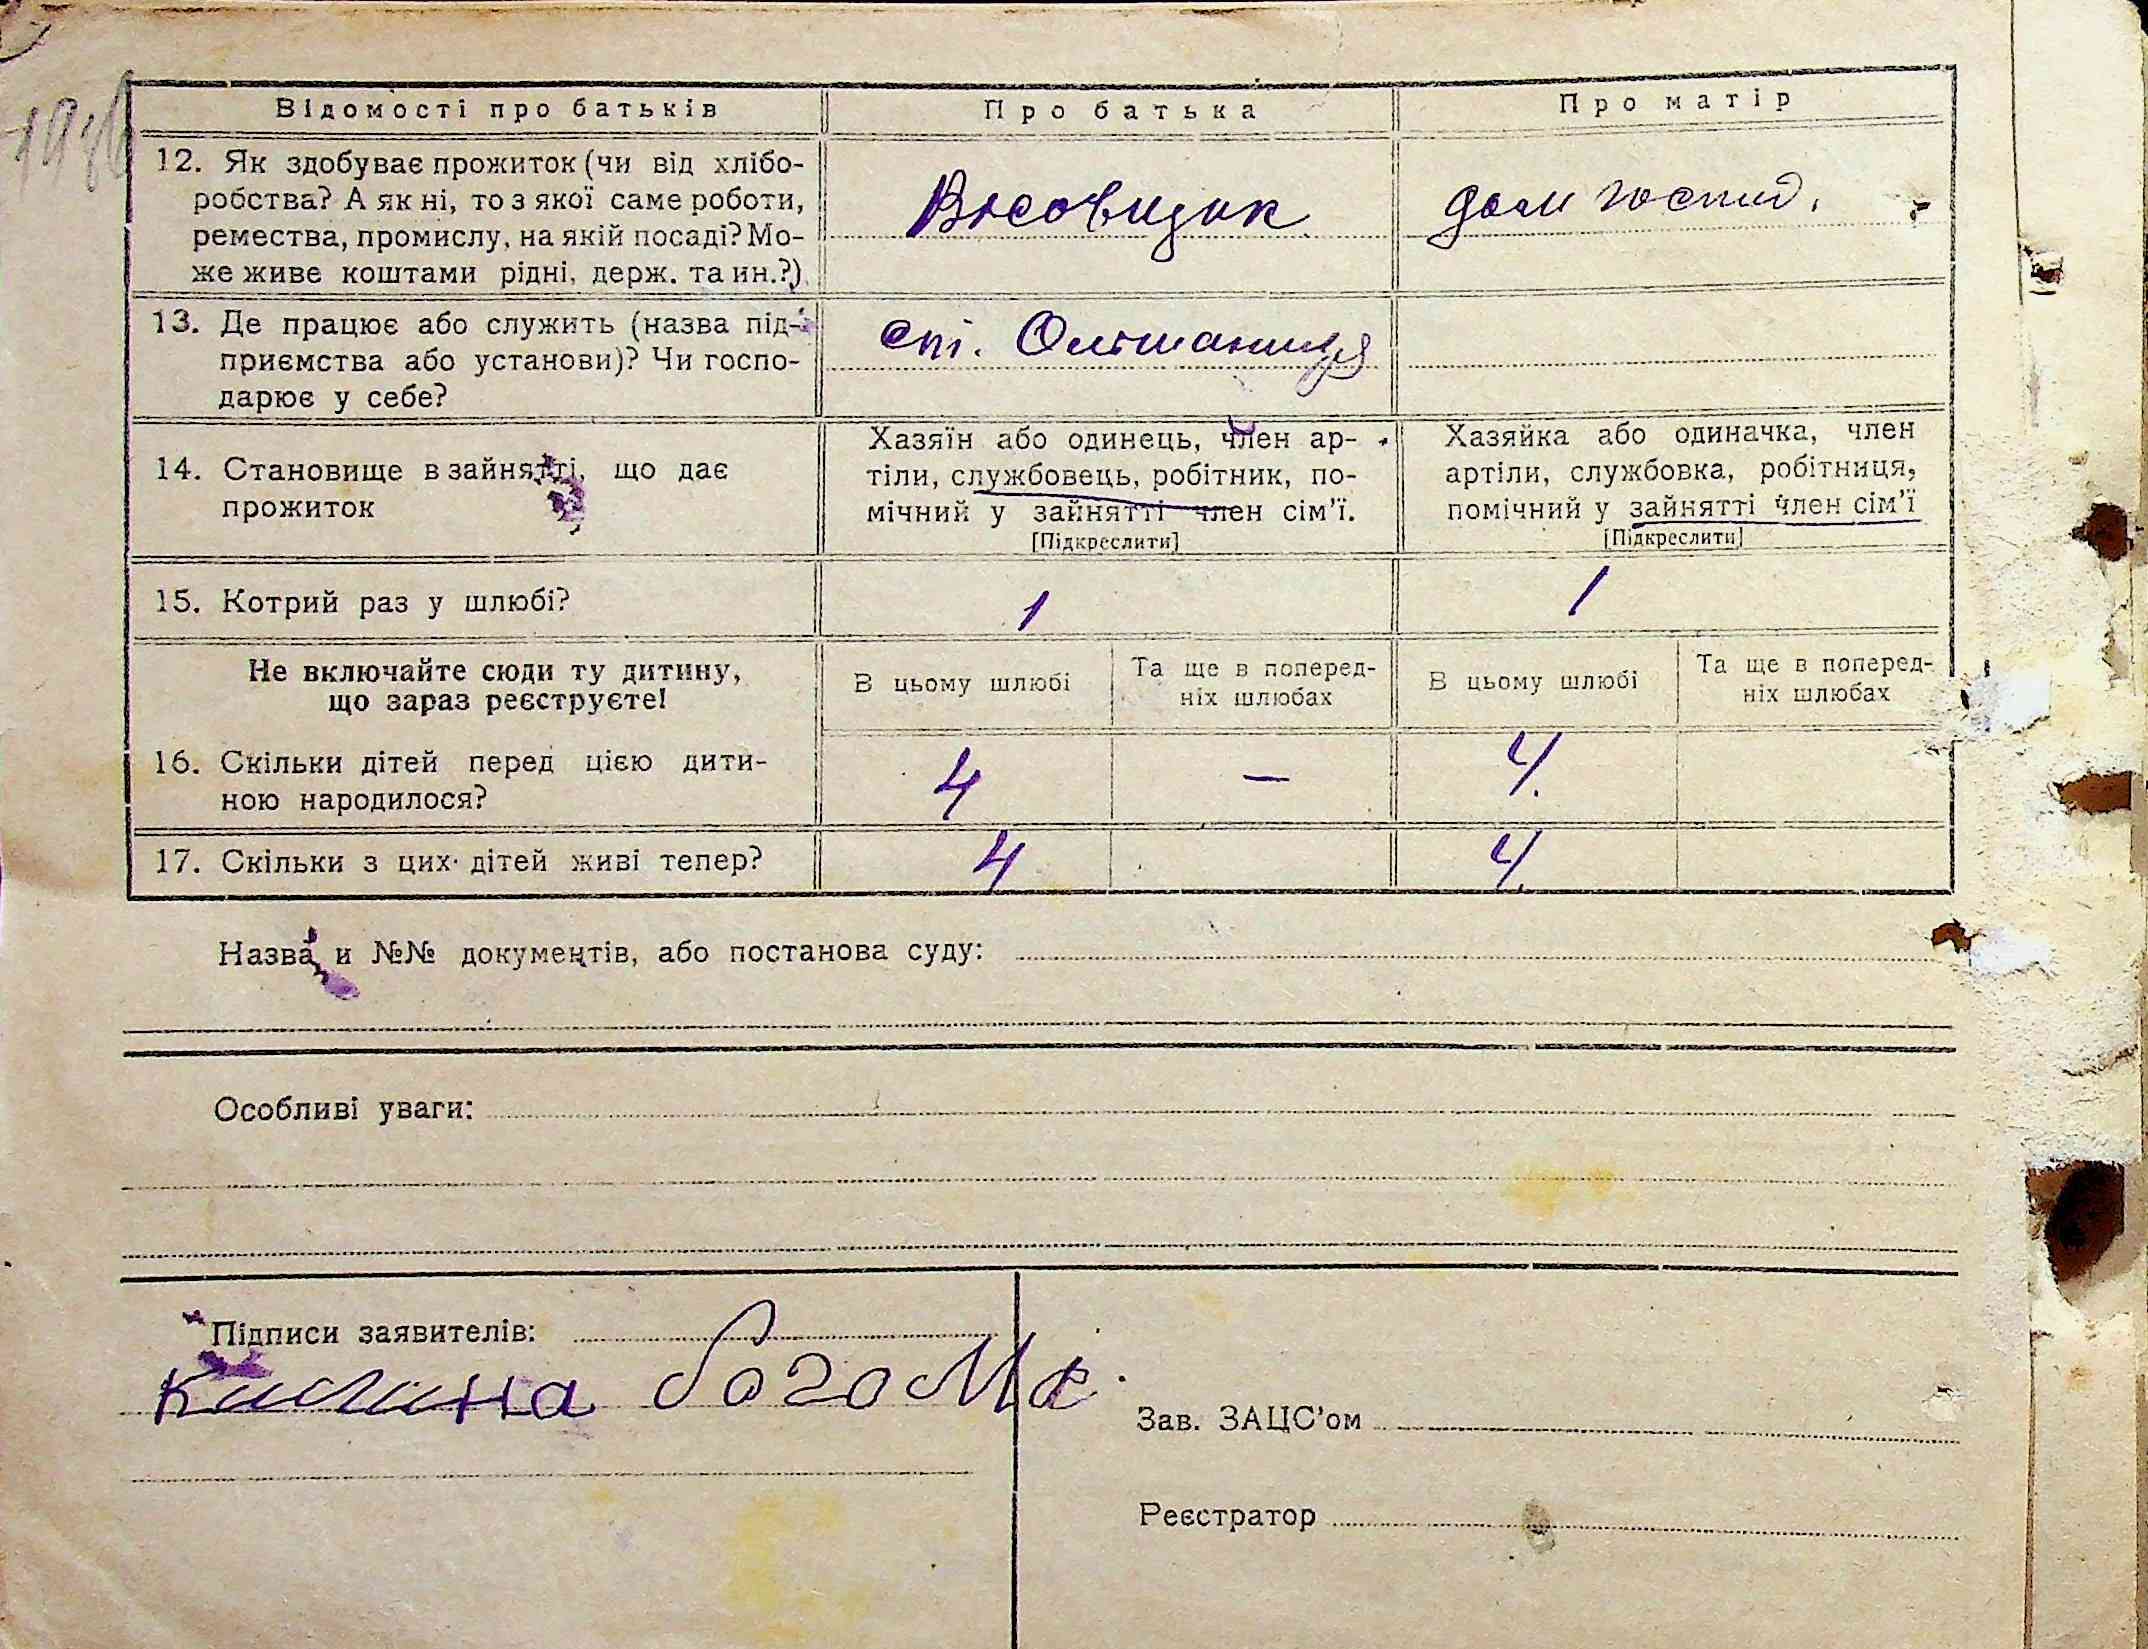 Відомості про батьків Про батька Про матір
12. Як здобуває прожиток (чи від хлібо-
робства? А як ні, то з якої саме роботи,
ремества, промислу, на якій посаді? Мо-
же живе коштами рідні, держ. та ин.?)
Ваговщик
дом господ.
13. Де працює або служить (назва під-
приємства або установи)? Чи госпо-
дарює у себе?
ст. Ольшаниця
14. Становище в зайнятті, що дає
прожиток
Хазяїн або одинець, член ар-
тіли, службовець, робітник, по-
мічний у зайнятті член сім'ї.
[Підкреслити]
Хазяйка або одиначка, член
артіли, службовка, робітниця,
помічний у зайнятті член сім'ї
[Підкреслити]
15. Котрий раз у шлюбі? 1 1
Не включайте сюди ту дитину,
що зараз реєструєте!
В цьому шлюбі
Та ще в поперед-
ніх шлюбах
В цьому шлюбі
Та ще в поперед-
ніх шлюбах
16. Скільки дітей перед цією дити-
ною народилося?
4 — 4.
17. Скільки з цих дітей живі тепер? 4 4.
Назва и №№ документів, або постанова суду:
Особливі уваги:
Підписи заявителів:
Зав. ЗАЦС'ом
Реєстратор